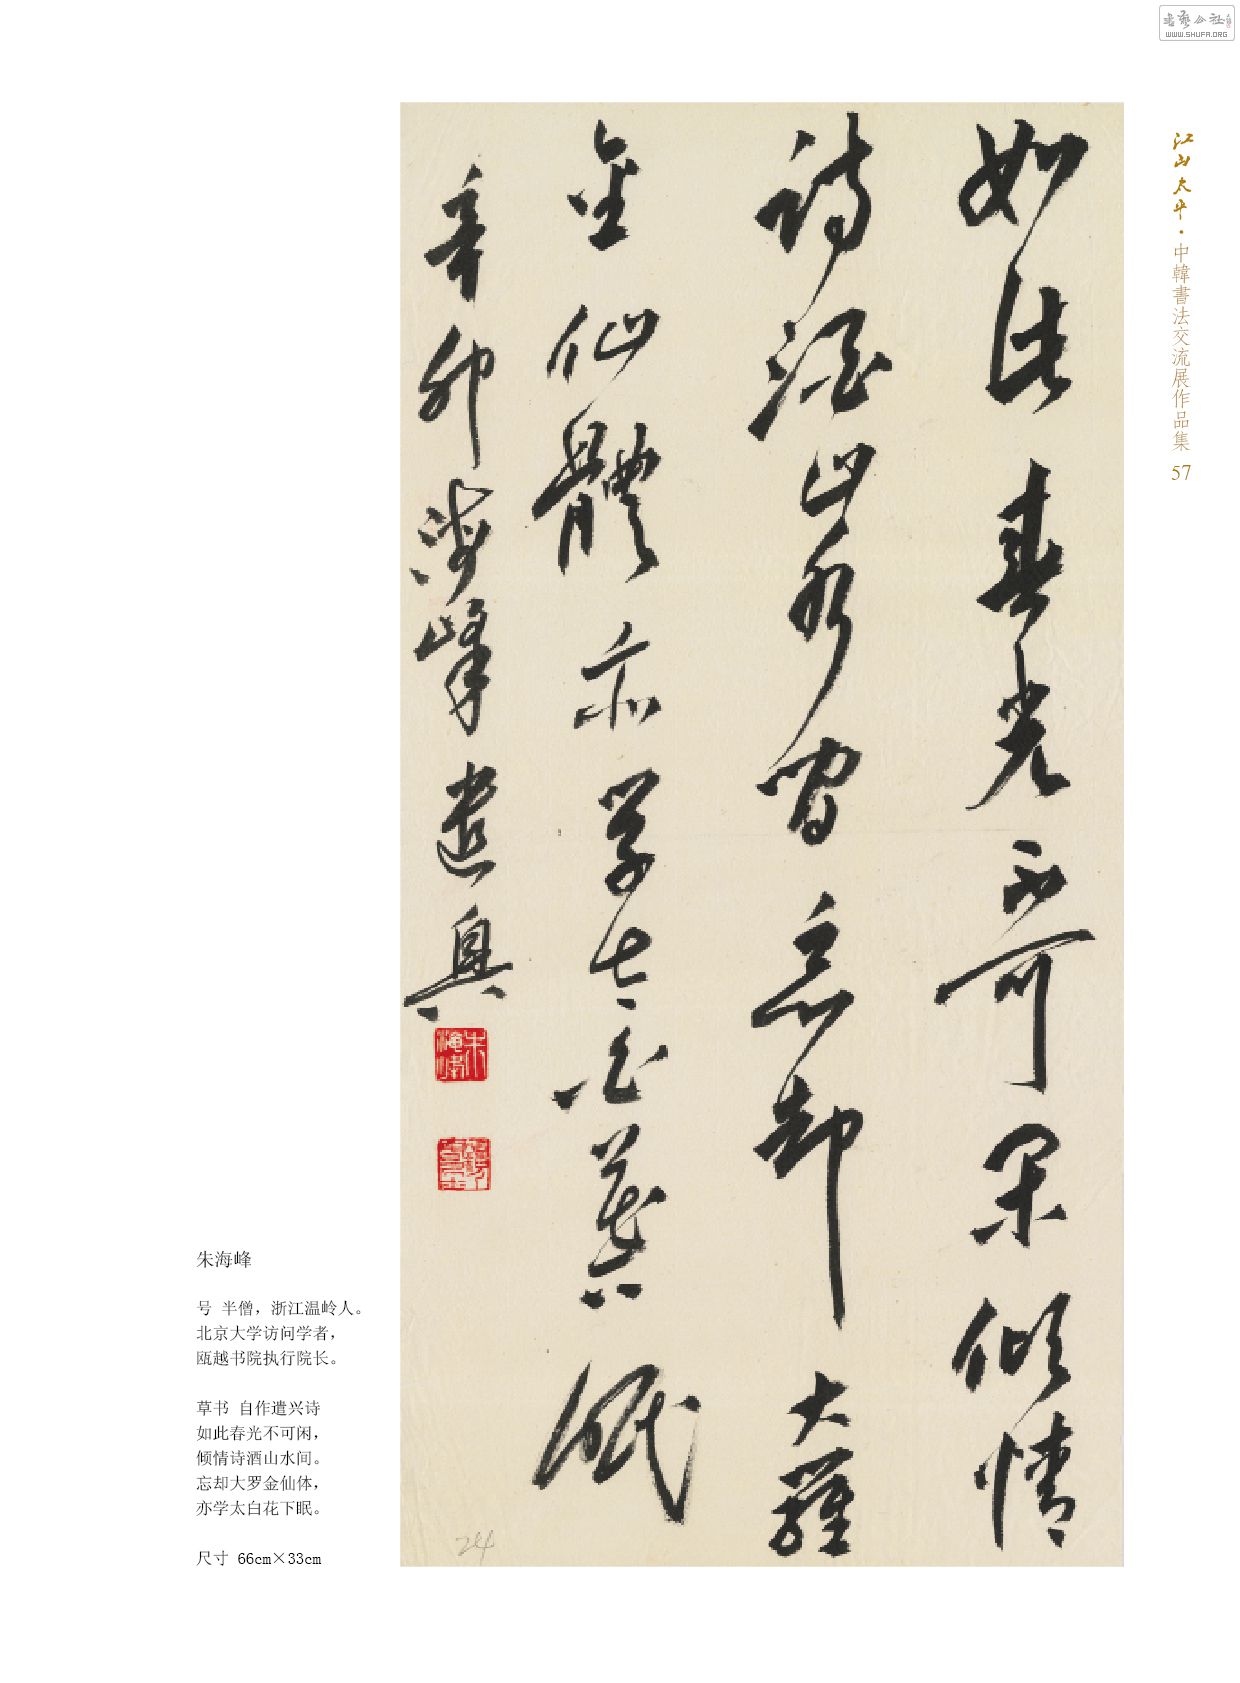 書藝公社
WWW.SHUFA.ORG
江山太平·中韓書法交流展作品集 57
如此春光不可閑傾情
詩酒山水間忘却大羅
金仙體亦學太白花下眠
辛卯海峰遣興
朱海峰
24
朱海峰
号 半僧，浙江温岭人。
北京大学访问学者，
瓯越书院执行院长。
草书 自作遣兴诗
如此春光不可闲，
倾情诗酒山水间。
忘却大罗金仙体，
亦学太白花下眠。
尺寸 66cm×33cm